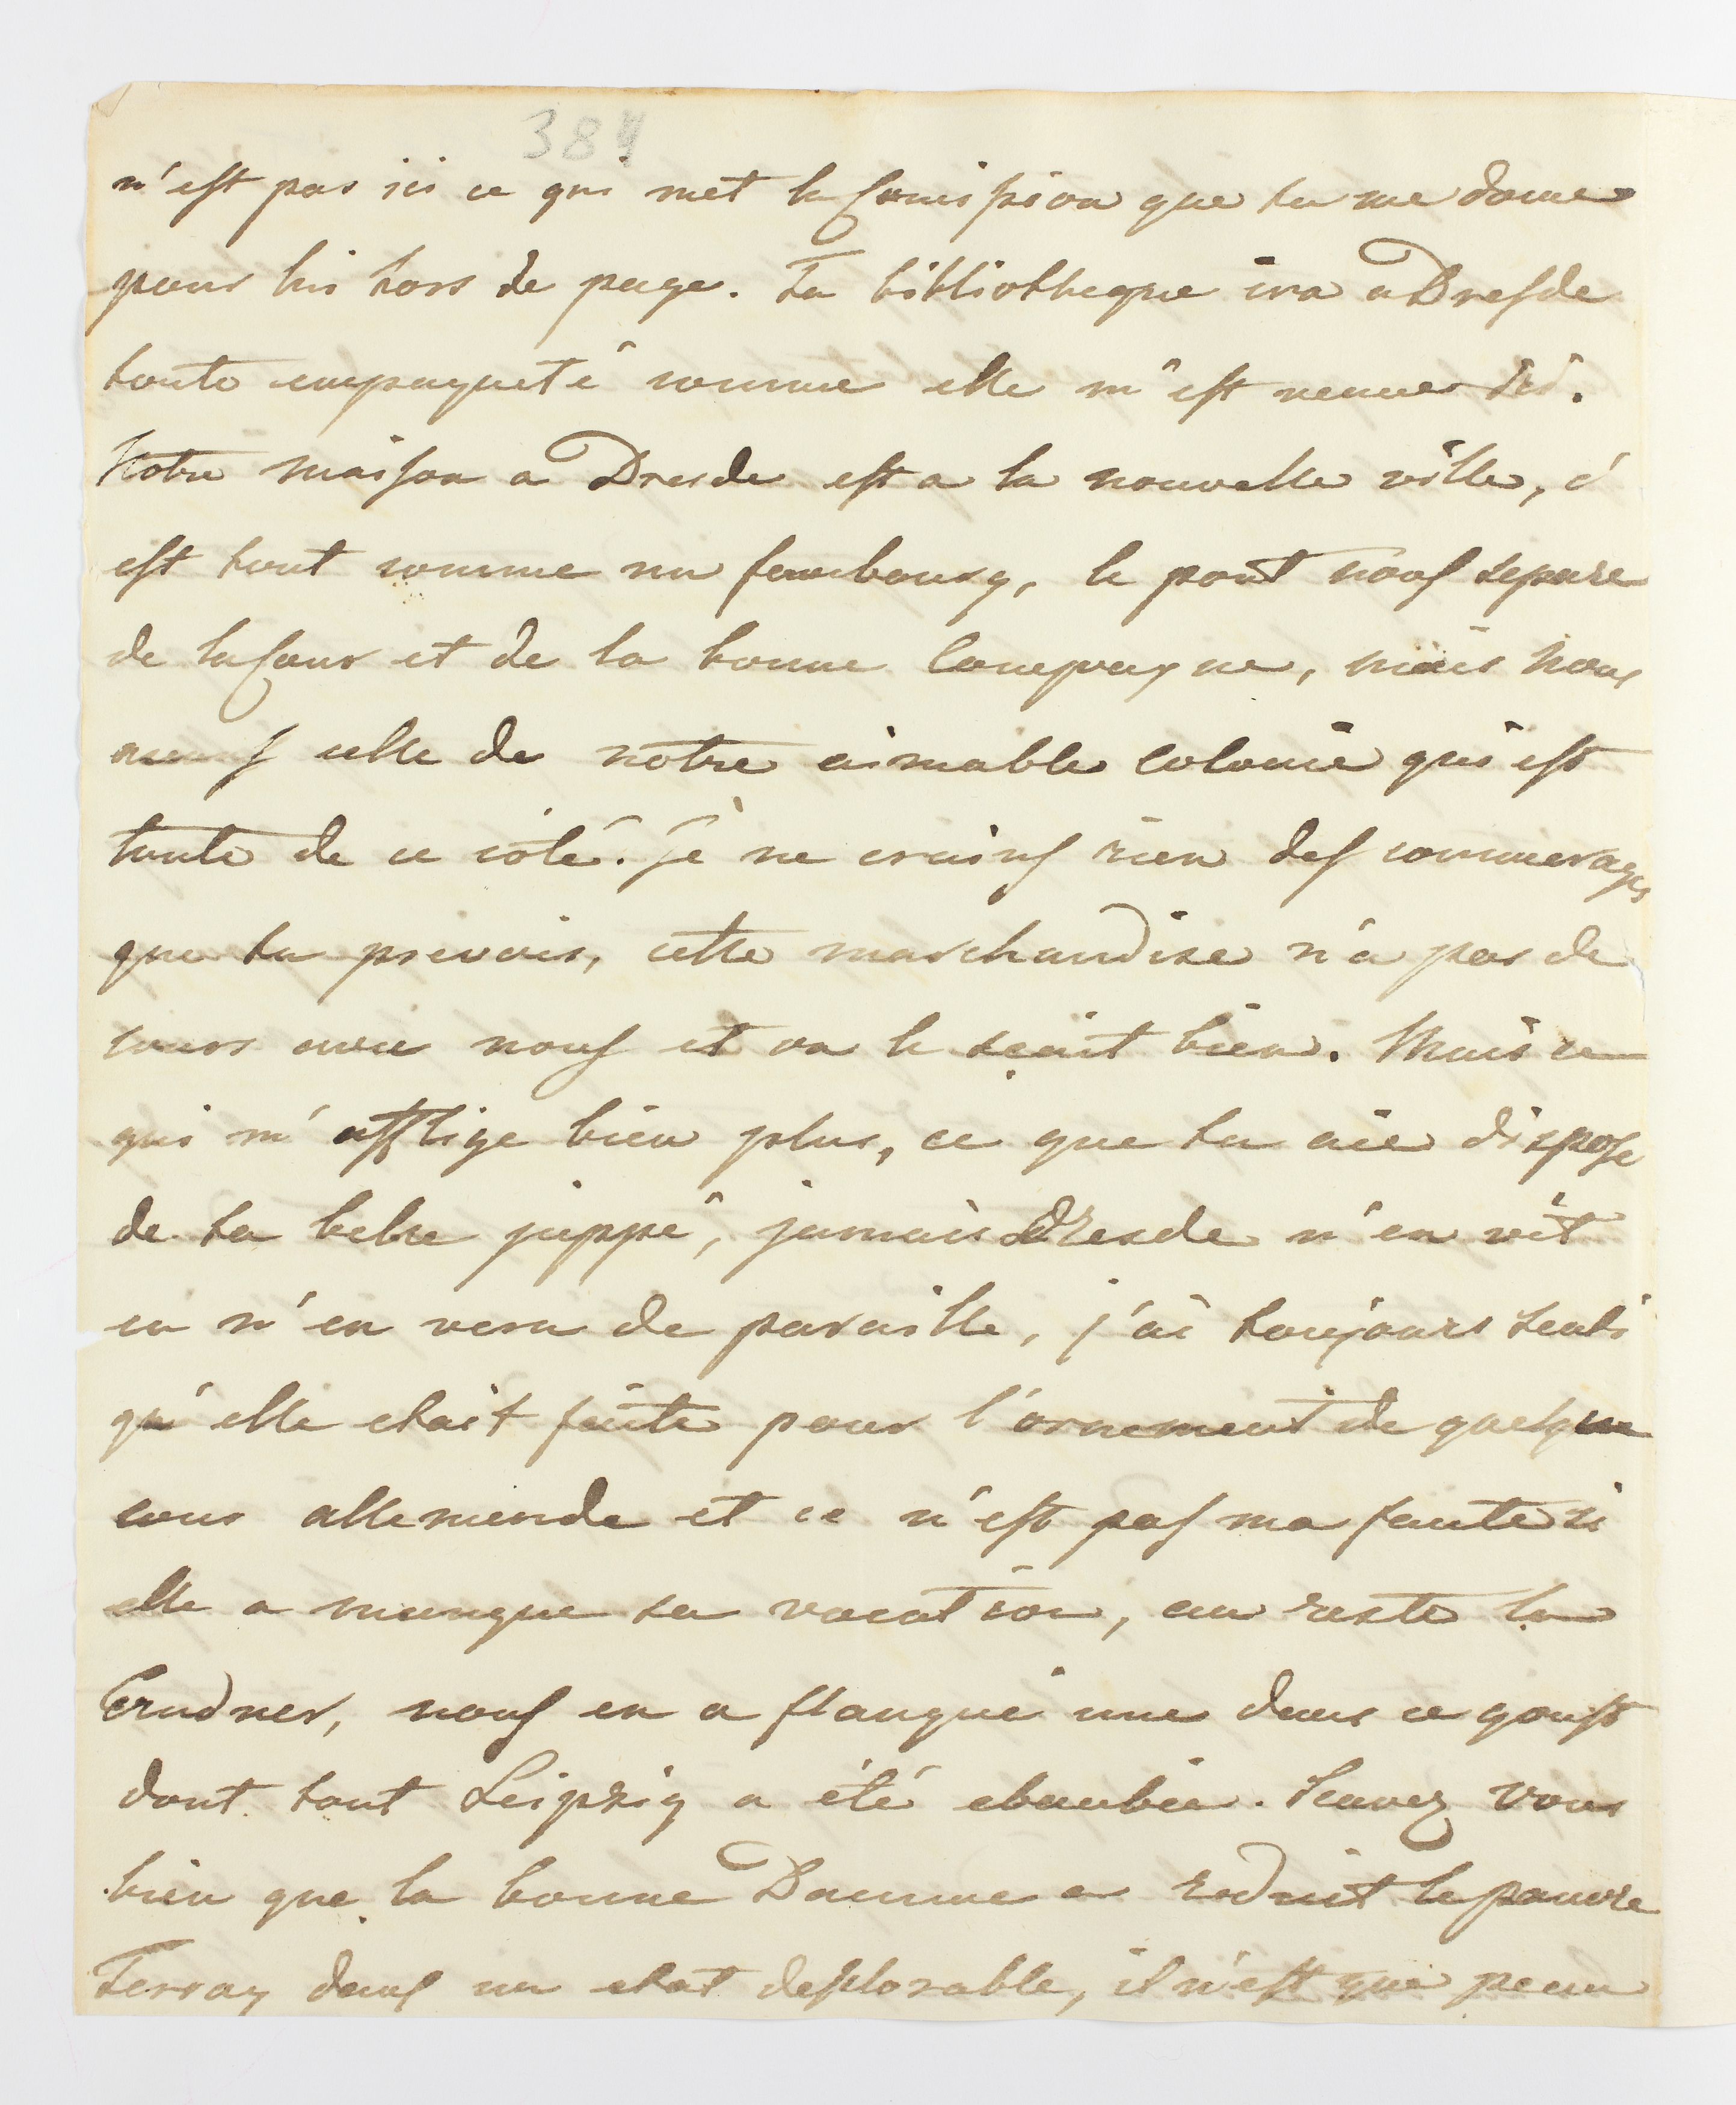 384
n'est pas ici ce qui met la Comission que tu me done
pour lui hors de page. Ta bibliotheque ira a Dresde
toute empaqueté comme elle m'est venue ici.
Notre maison a Dresde est a la nouvelle ville, c'
est tout comme un feaubourg, le pont nous separe
de la Cour et de la bonne Compagne, mais nous
avons celle de notre aimable Colonie qui est
toute de ce coté. je ne crains rien des commerages
que tu prevois, cette marchandise n'a pas de
cours avec nous et on le sçait bien. Mais ce
qui m'afflige bien plus, ce que tu aie dispose
de ta belre juppe, jamais Dresde n'en vit
en n'en vera de paraille, j'ai toujours senti
qu'elle etait faite pour l'ornement de quelque
cour allemende et ce n'est pas ma faute si
elle a manque sa vocation, au reste la
Crudner, nous en a flanqué une dans ce goust
dont tout Leipzig a été ebaubie. Savez vous
bien que la bonne Damme a reduit le pauvre
Terray dans un etat deplorable, il n'est que peau